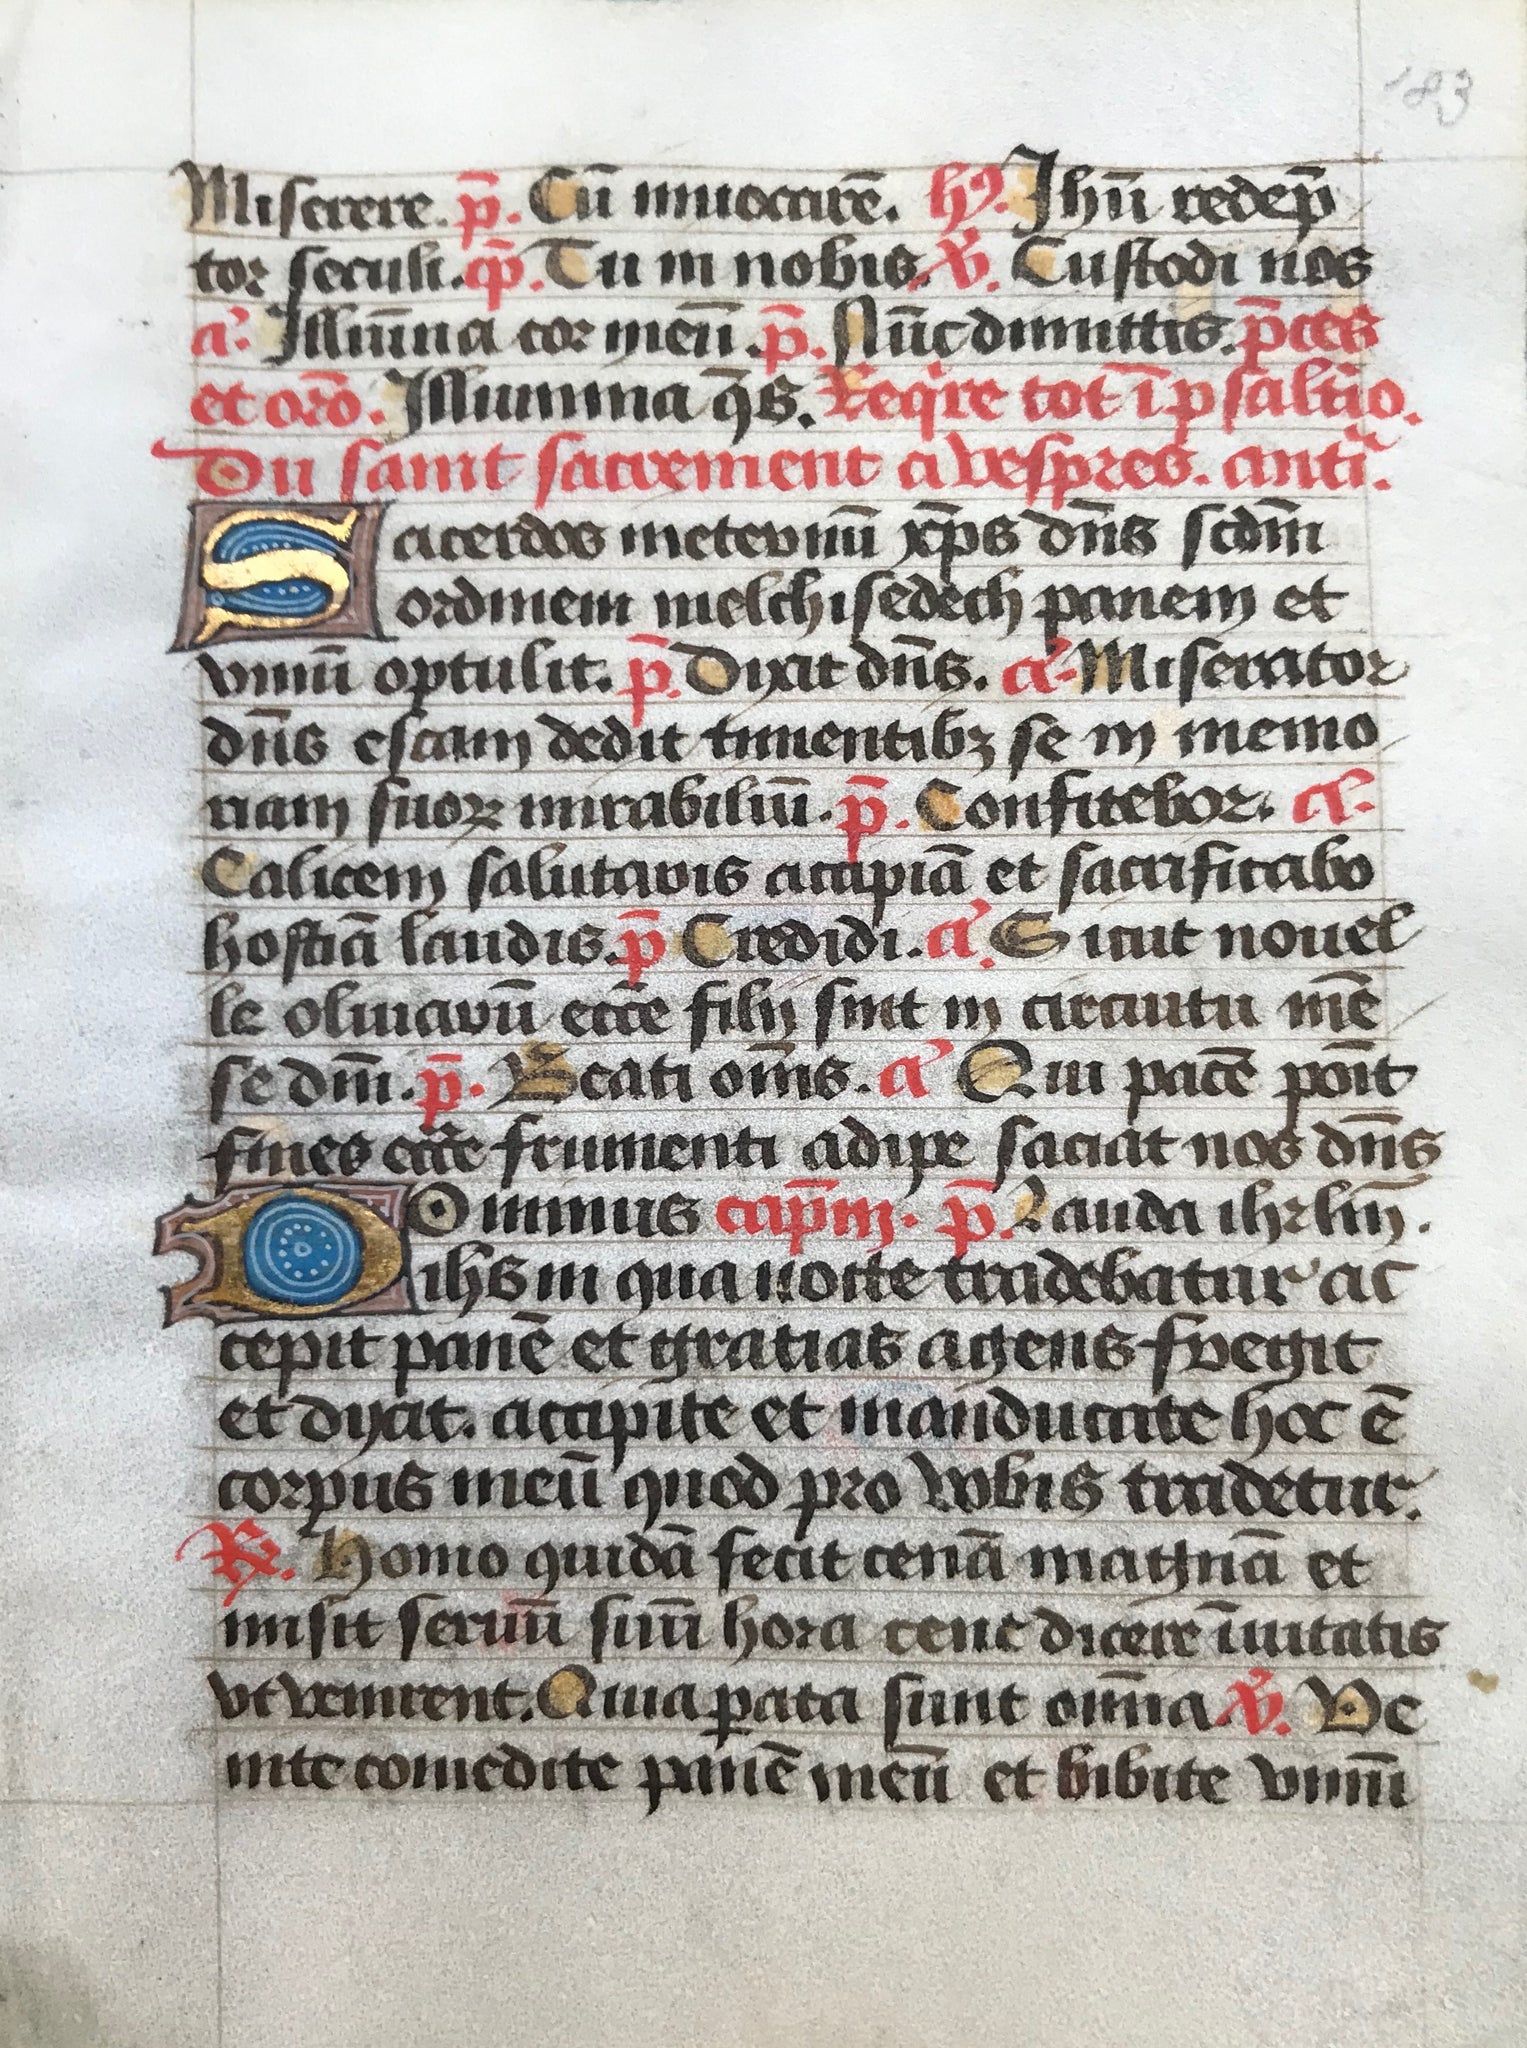 183
Miserere. p̄. Cū inuocarē. hꝰ. Jhū redēp
tor seculi. cp̄. Tu in nobis. v̄. Custodi nos
aᷓ. Illūina cor meū. p̄. Nūc dimittis. p̄ces
et orō. Illumina q̄s. Reqͥre tot ī psaltͥio.
Du saint sacrement a vespres. antᷓ.
Sacerdos ineternū xp̄s dn̄s scdm̄
ordinem melchisedech panem et
vinū optulit. p̄. Dixit dn̄s. aᷓ. Miserator
dn̄s escam dedit timentibꝫ se in memo
riam suoꝝ mirabiliū. p̄. Confitebor. aᷓ.
Calicem salutaris accipiā et sacrificabo
hostiā laudis. p̄ Credidi. aᷓ. Sicut nouel
le oliuarū ecc̄e filij sint in circuitu mē
se dn̄i. p̄. Beati om̄s. aᷓ Qui pacē pōit
fines ecc̄e frumenti adipe saciat nos dn̄s
Dominus cap̄m. p̄. Lauda ihrlm̄.
ihs in qua nocte tradebatur ac
cepit panē et gratias agens fregit
et dixit. accipite et manducate hoc ē
corpus meū quod pro vobis tradetur.
℟. Homo quidā fecit cenā magnā et
misit seruū suū hora cene dicere īuitatis
vt venirent. Quia ꝑata sunt om̄ia. v̄. Ve
nite comedite panē meū et bibite vinū